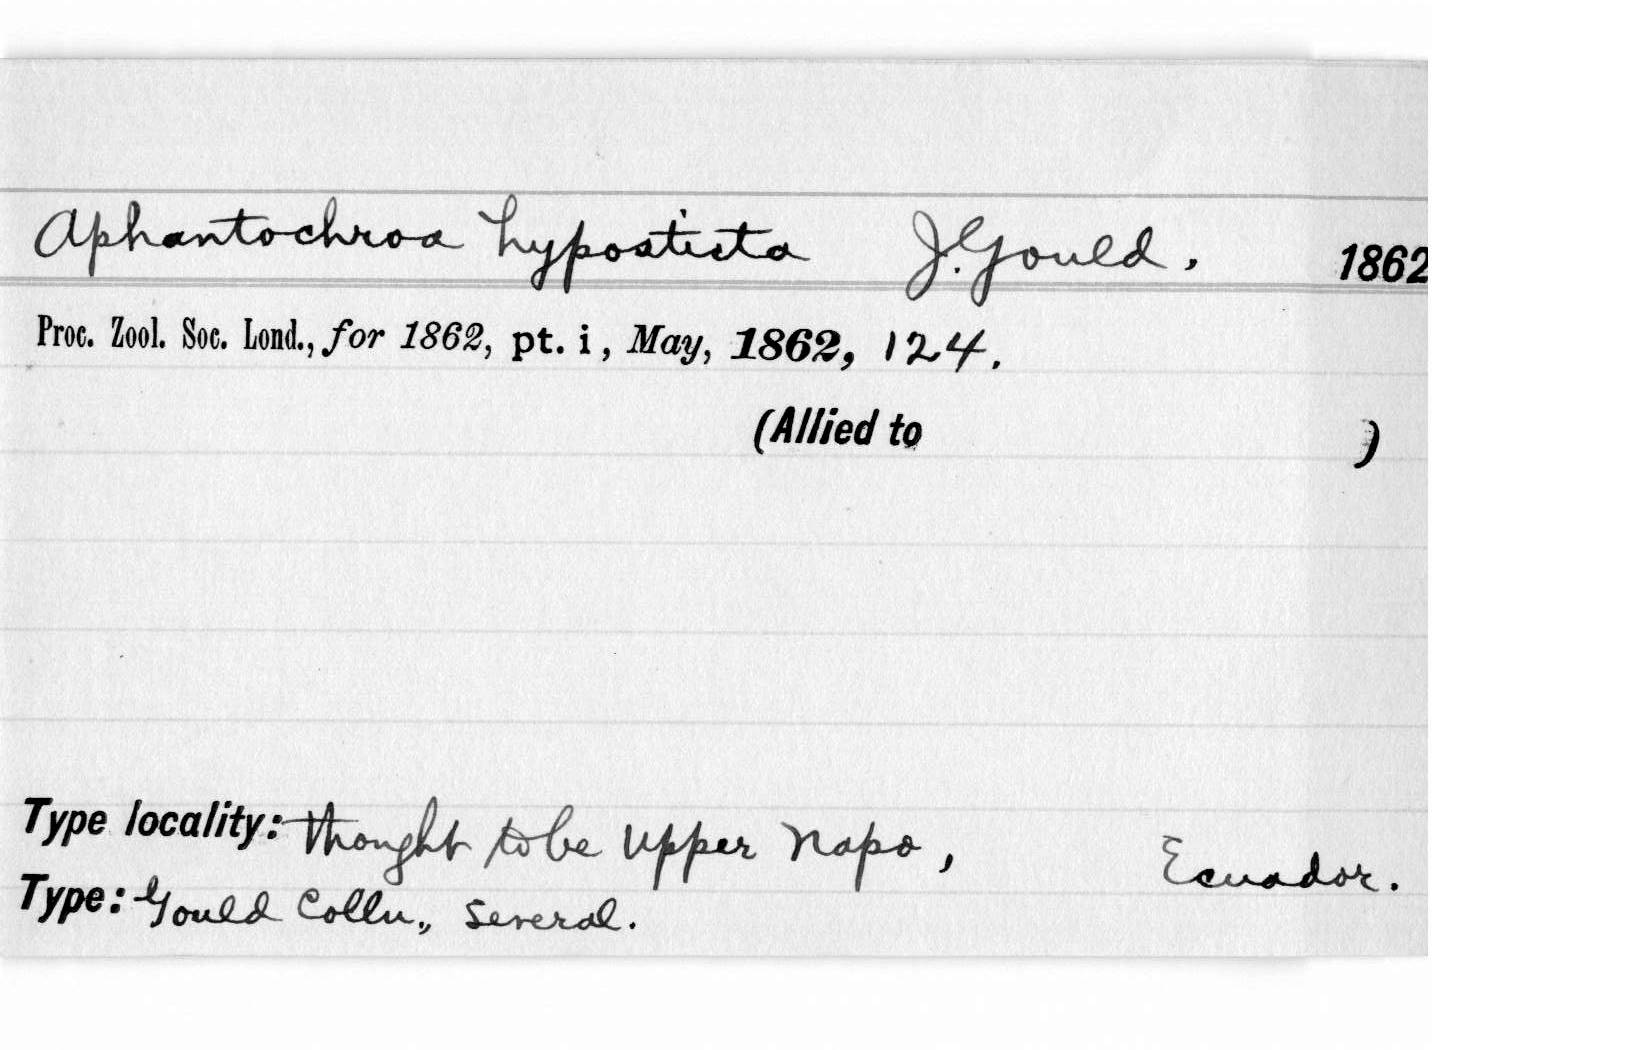 Aphantochroa hyposticta J. Gould, 1862
Proc. Zool. Soc. Lond., for 1862, pt. i, May, 1862, 124.
(Allied to )
Type locality: thought to be Upper Napo, Ecuador.
Type: Gould Colln., several.